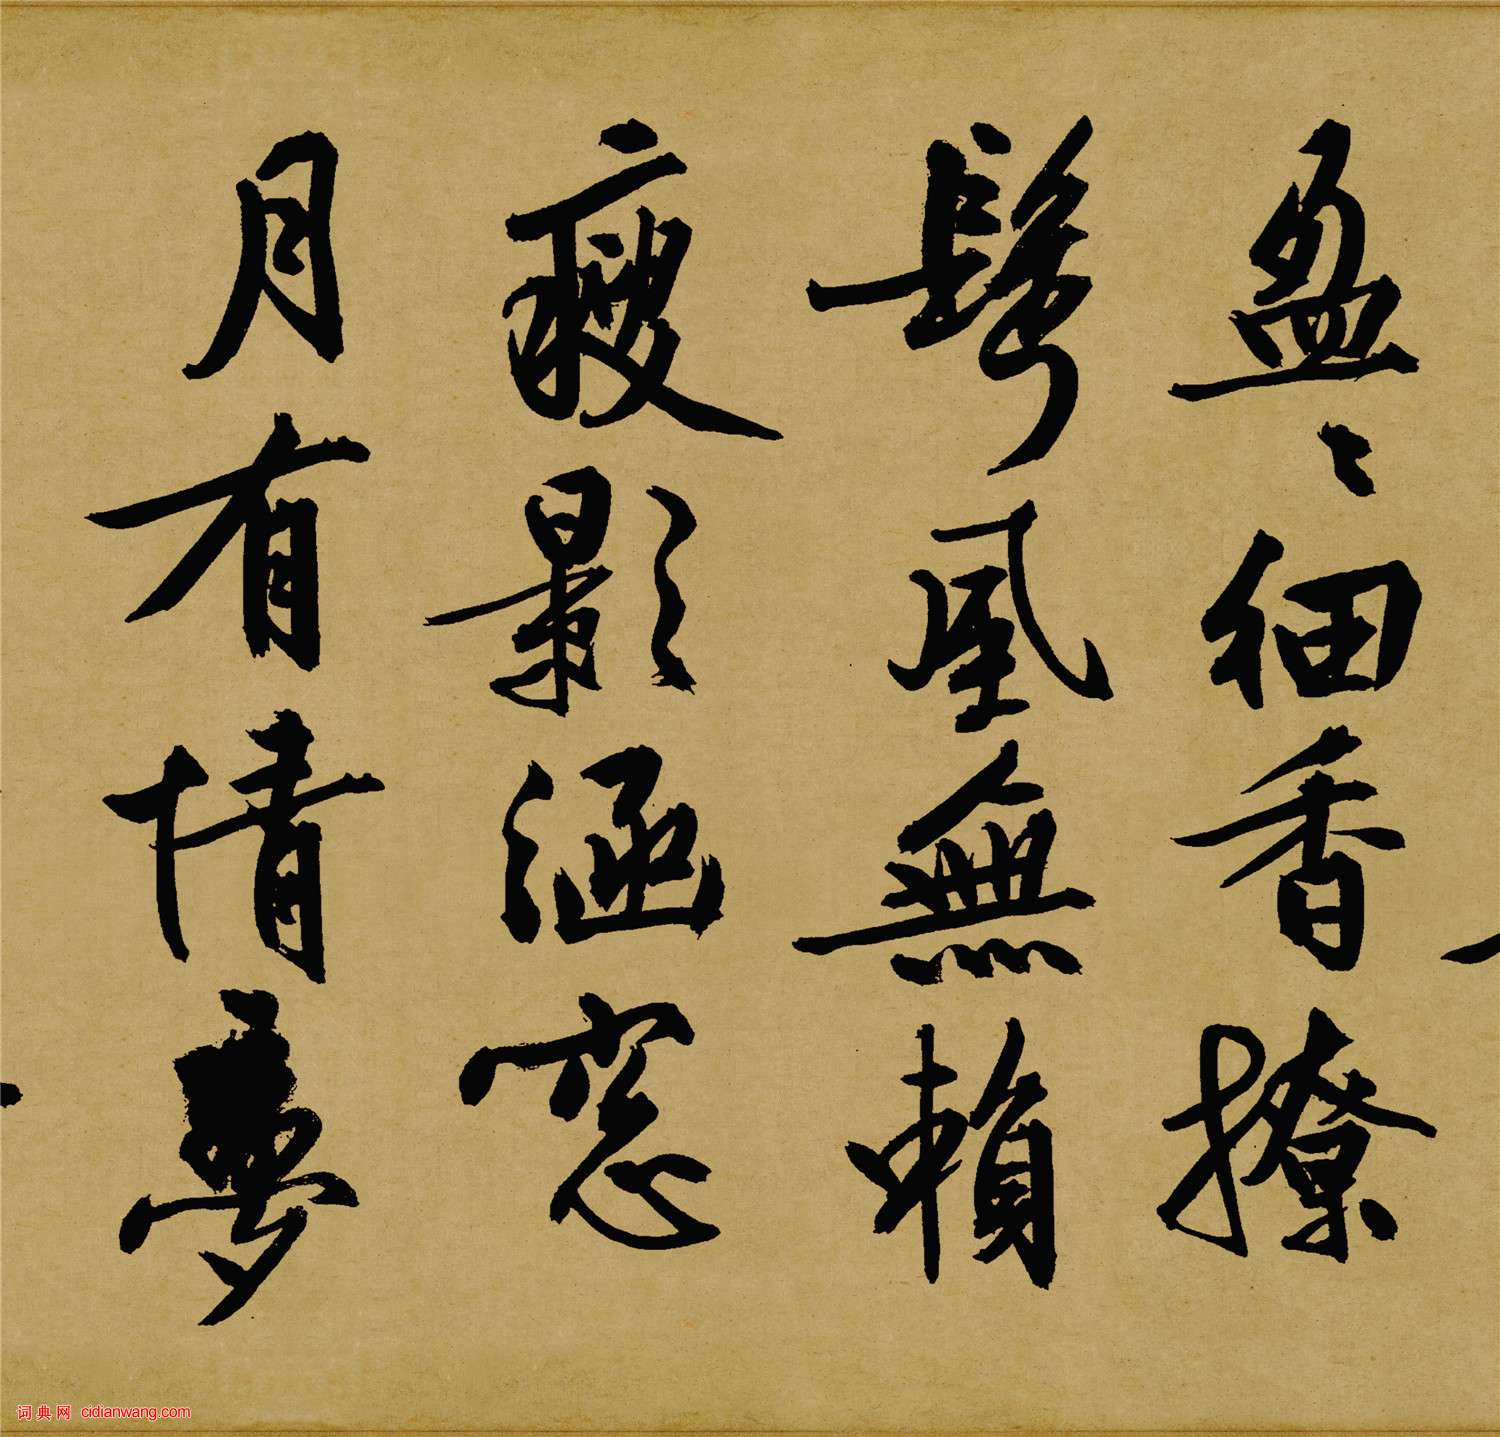 盈〻細香撩
鬢風無賴
瘦影涵窓
月有情夢
词典网 cidianwang.com